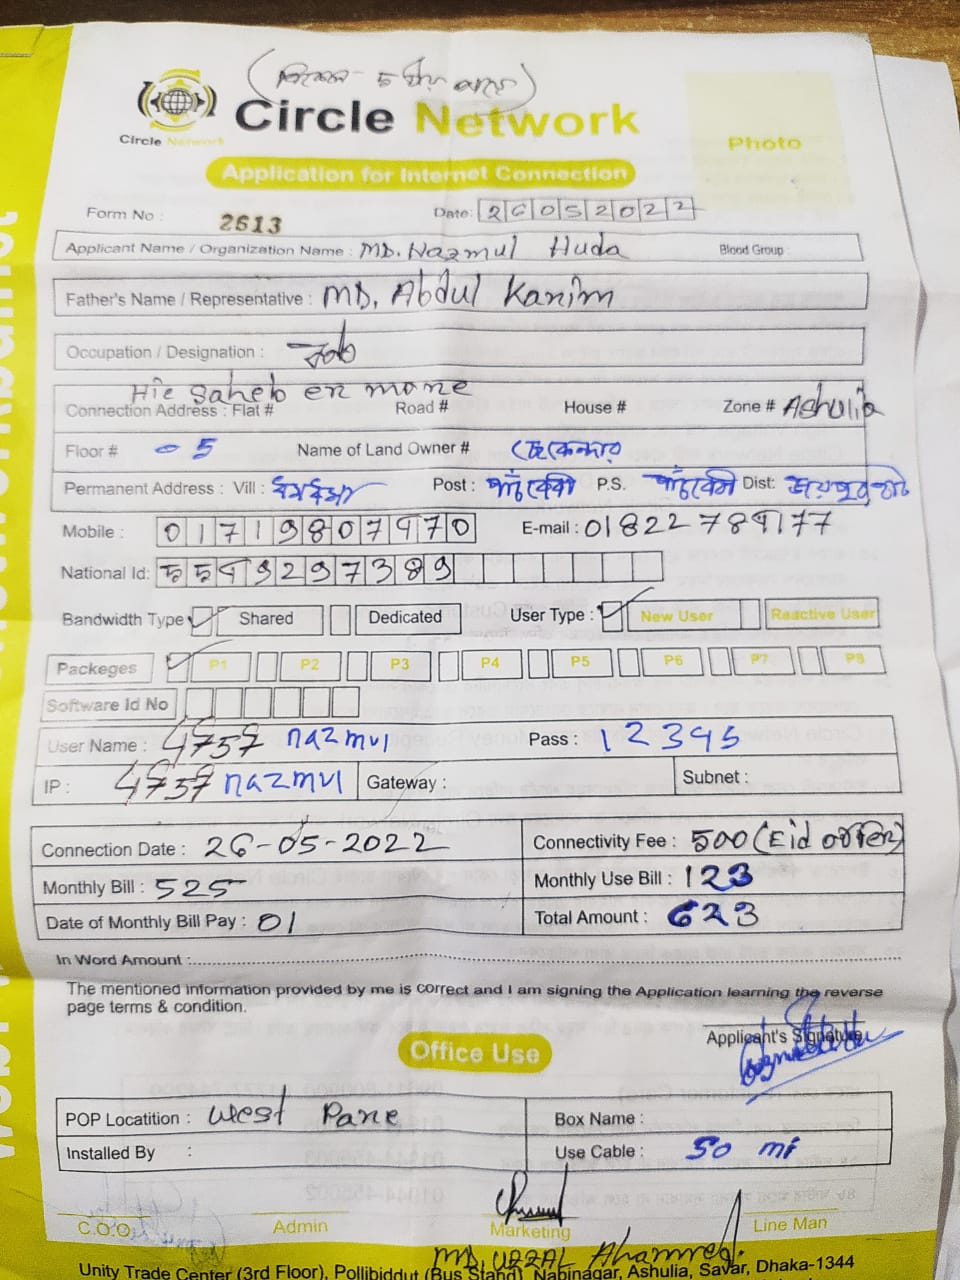 Circle Network
Circle Network
Photo
Application for Internet Connection
Form No : 2613 Date: 26052022
Applicant Name / Organization Name : MD. Nazmul Huda Blood Group :
Father's Name / Representative : MD, Abdul Karim
Occupation / Designation : Job
Hie saheb er more
Connection Address : Flat # Road # House # Zone # Ashulia
Floor # 5 Name of Land Owner #
Permanent Address : Vill : Post : পাঁচবিবি P.S. পাঁচবিবি Dist: জয়পুরহাট
Mobile : 01719807970 E-mail : 01822789177
National Id: 5592297389
Bandwidth Type Shared Dedicated User Type : New User Reactive User
Packeges P1 P2 P3 P4 P5 P6 P7 P8
Software Id No
User Name : nazmul Pass : 12345
IP : nazmul Gateway : Subnet :
Connection Date : 26-05-2022 Connectivity Fee : 500 (Eid offer)
Monthly Bill : 525 Monthly Use Bill : 123
Date of Monthly Bill Pay : 01 Total Amount : 623
In Word Amount :
The mentioned information provided by me is correct and I am signing the Application learning the reverse
page terms & condition.
Applicant's Signature
Office Use
POP Locatition : West Pane Box Name :
Installed By : Use Cable : 50 mi
C.O.O Admin Marketing Line Man
MD, UZZAL Ahammed.
Unity Trade Center (3rd Floor), Pollibiddut (Bus Stand), Nabinagar, Ashulia, Savar, Dhaka-1344